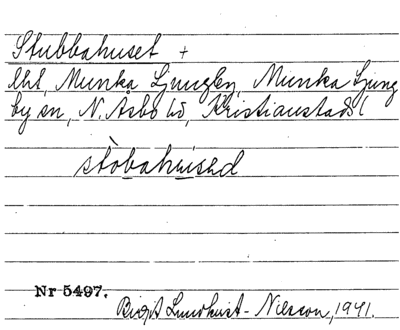 Stubbahuset +
lht, Munka Ljungby, Munka Ljung
by sn, N. Åsbo hd, Kristianstads l
stòbahused
Nr 5497.
Birgit Lundkvist-Nilsson, 1941.